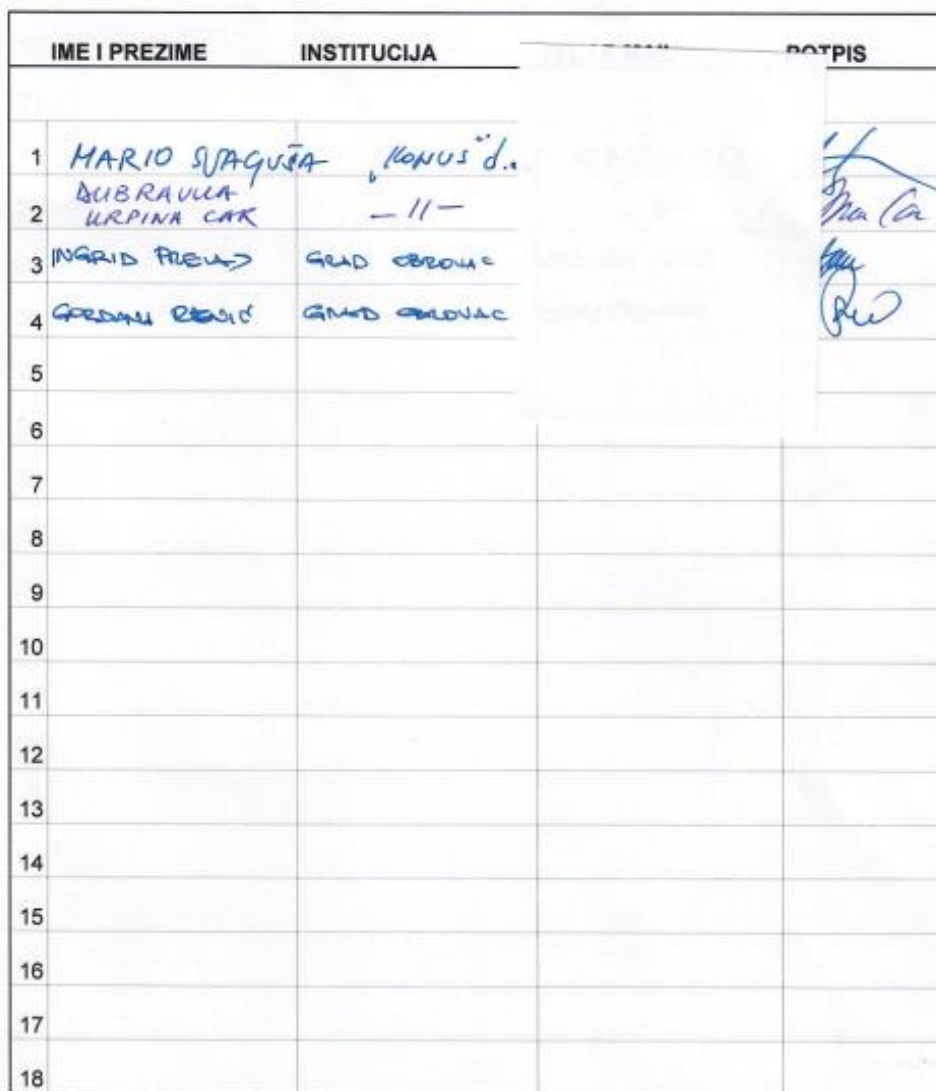 IME I PREZIME INSTITUCIJA POTPIS
1 MARIO "KONUS" d..
2 DUBRAVKA
KRPINA CAR - 11 -
3 INGRID GRAD OBROVAC
4 GORDANA GRAD OBROVAC
5
6
7
8
9
10
11
12
13
14
15
16
17
18